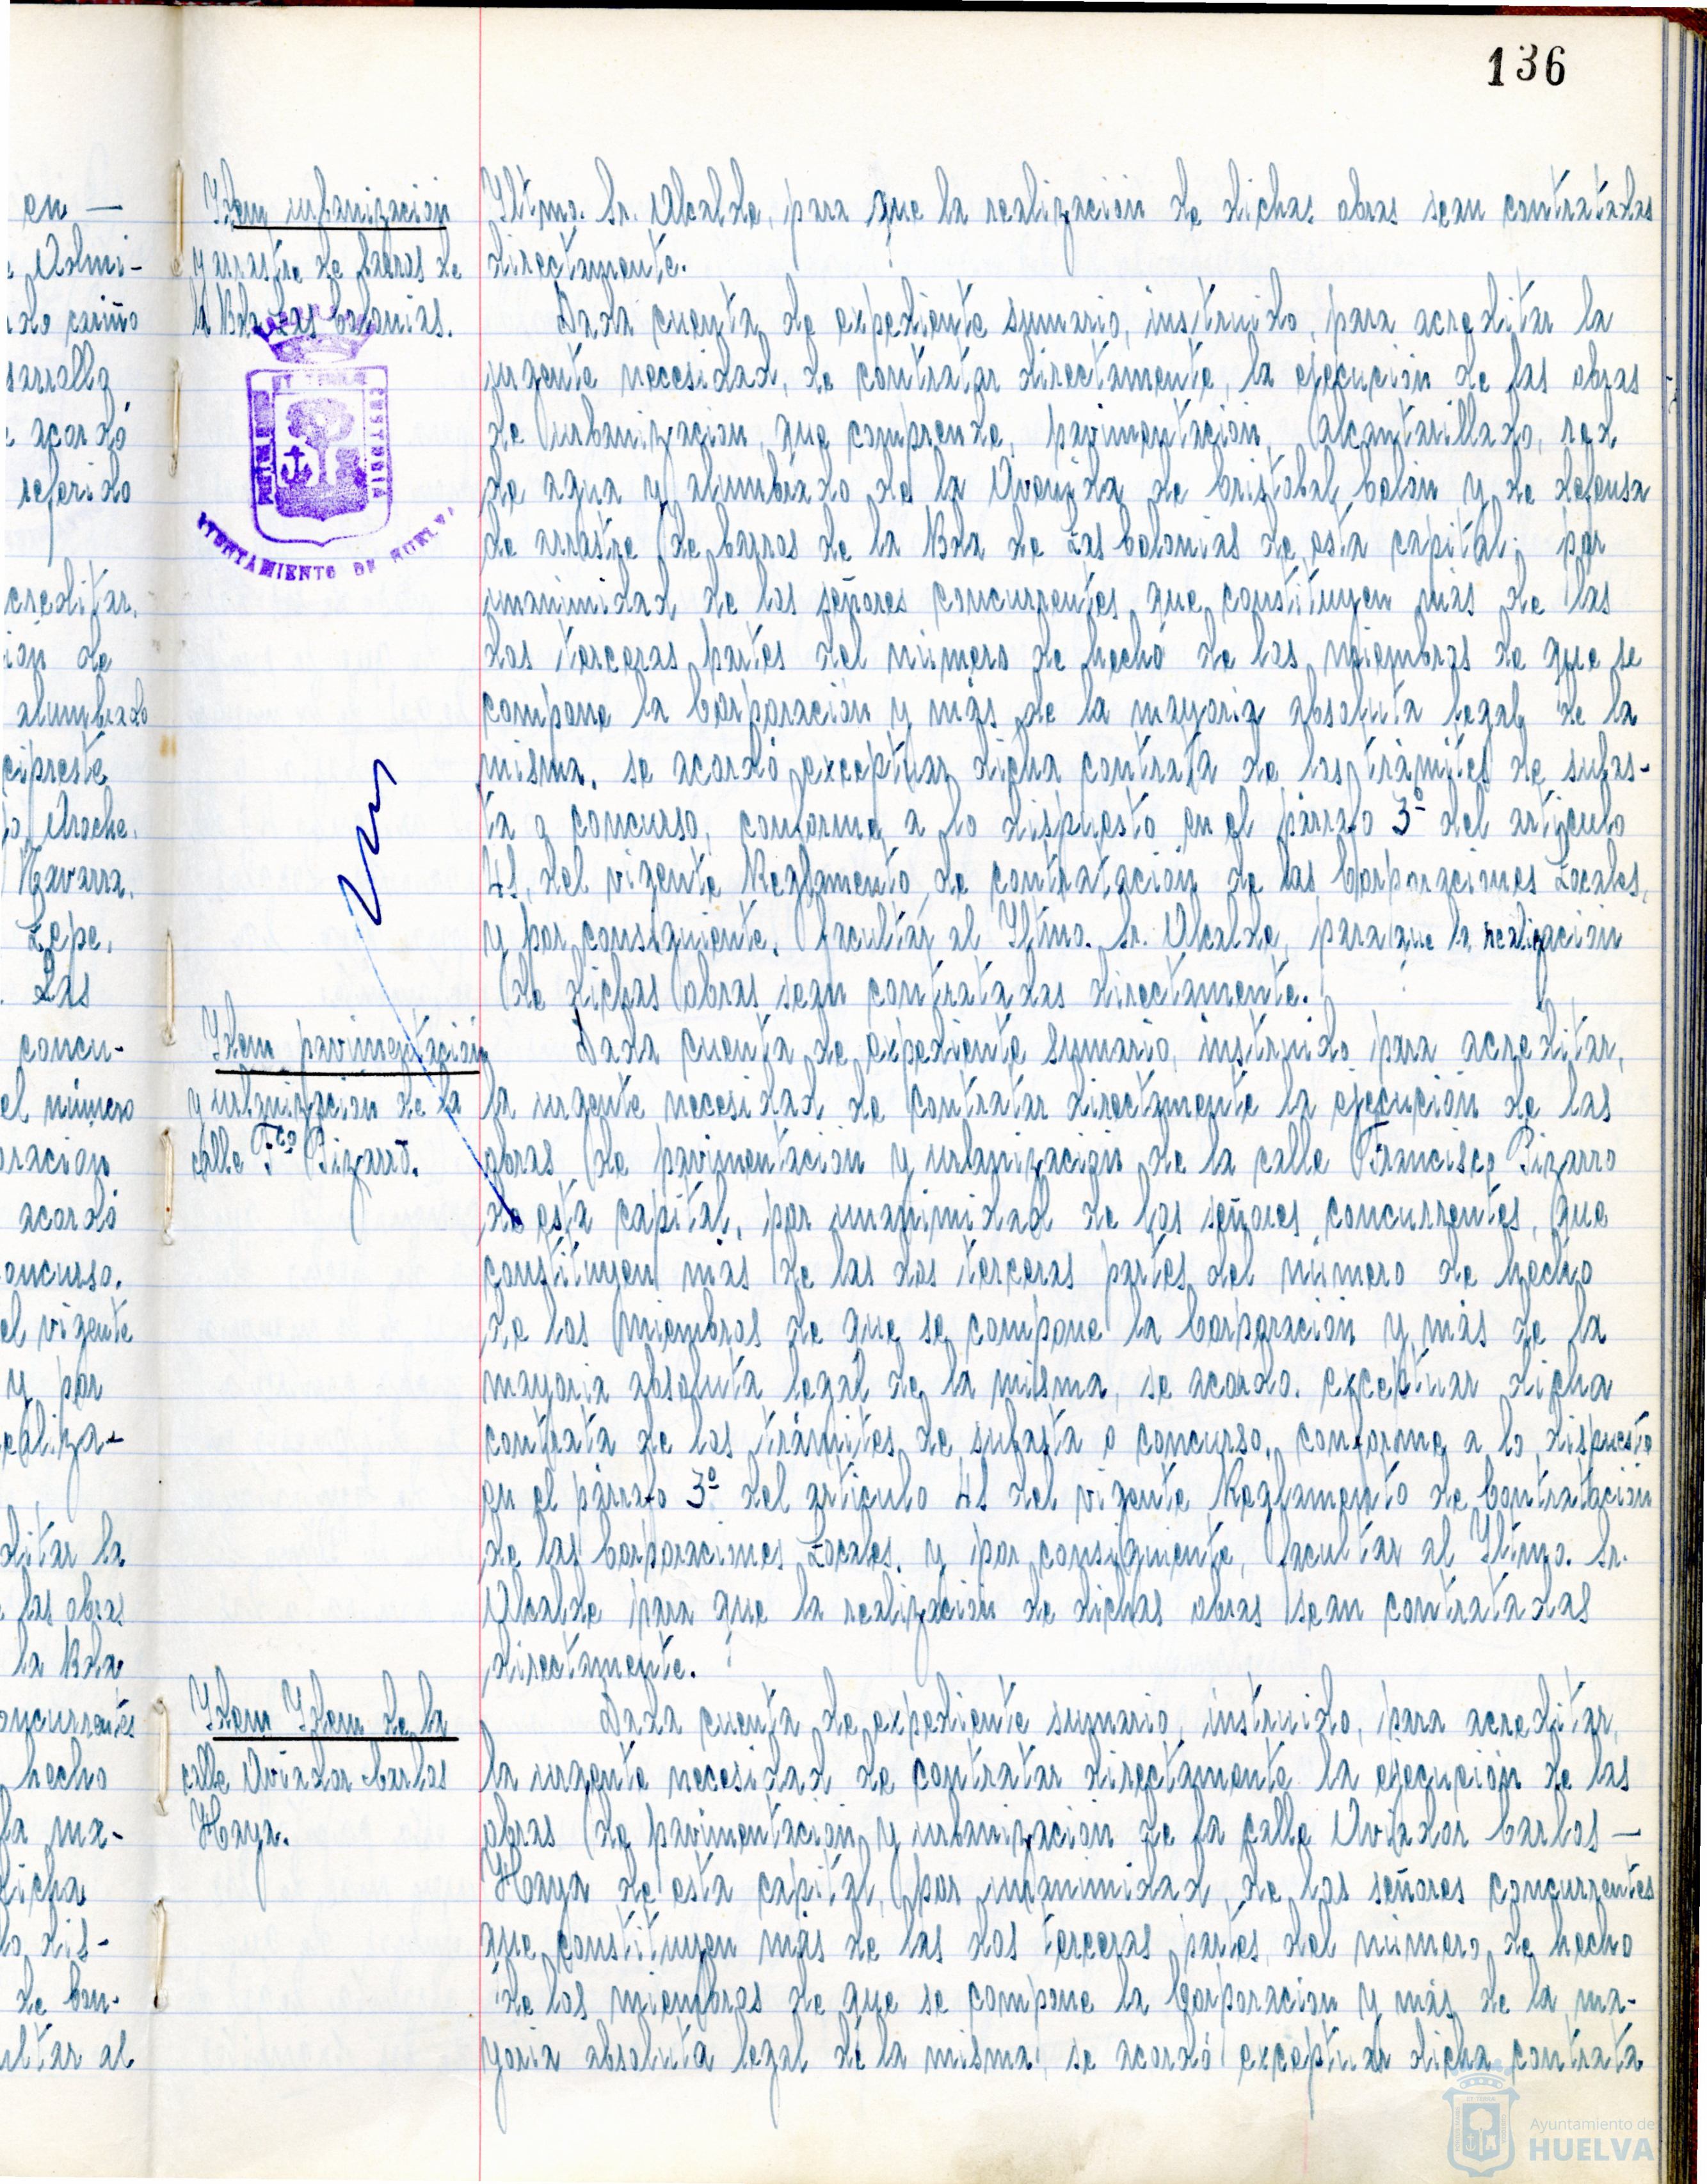 136
en —
e Admi-
do cariño
sarrollo
e acordó
referido
creditar,
ion de
alumbrado
cipreste
Aroche,
Navarra,
Lepe,
. Las
concu-
el número
oracion
acordó
oncurso,
el vigente
y por
ealiza-
ditar la
e las obras
la Bda
oncurrentes
hecho
la ma-
dicha
lo dis-
de Con-
ultar al
Idem urbanizacion
y arrastre de barros de
la Bda Las Colonias.
AYUNTAMIENTO DE HUELVA
Idem pavimentación
y urbanizacion de la
calle Fco Pizarro.
Idem Idem de la
calle Aviador Carlos
Haya.
Iltmo. Sr. Alcalde, para que la realización de dichas obras sean contratadas
directamente.
Dada cuenta de expediente sumario, instruido, para acreditar la
urgente necesidad, de contratar directamente, la ejecución de las obras
de urbanización, que comprende, pavimentación, Alcantarillado, red
de agua y alumbrado de la Avenida de Cristobal Colón y de defensa
de arrastre de barros de la Bda de Las Colonias de esta capital; por
unanimidad de los señores concurrentes que constituyen más de las
dos terceras partes del número de hecho de los miembros de que se
compone la Corporación y más de la mayoria absoluta legal de la
misma, se acordó exceptuar dicha contrata de los trámites de subas-
ta o concurso, conforme a lo dispuesto en el párrafo 3º del artículo
41, del vigente Reglamento de contratación de las Corporaciones Locales,
y por consiguiente, facultar al Iltmo. Sr. Alcalde, para que la realización
de dichas obras sean contratadas directamente.
Dada cuenta de expediente sumario, instruido para acreditar,
la urgente necesidad de contratar directamente la ejecución de las
obras de pavimentación y urbanización de la calle Francisco Pizarro
de esta capital, por unanimidad de los señores concurrentes, que
constituyen más de las dos terceras partes del número de hecho
de los miembros de que se compone la Corporación y más de la
mayoria absoluta legal de la misma, se acordo, exceptuar dicha
contrata de los trámites de subasta o concurso, conforme a lo dispuesto
en el párrafo 3º del artículo 41 del vigente Reglamento de Contratación
de las Corporaciones Locales, y por consiguiente, facultar al Iltmo. Sr.
Alcalde para que la realización de dichas obras sean contratadas
directamente.
Dada cuenta de expediente sumario, instruido, para acreditar,
la urgente necesidad de contratar directamente la ejecución de las
obras de pavimentación y urbanización de la calle Aviador Carlos —
Haya de esta capital, por unanimidad, de los señores concurrentes
que constituyen más de las dos terceras partes, del número de hecho
de los miembros de que se compone la Corporacion y más de la ma-
yoria absoluta legal de la misma, se acordó exceptuar dicha contrata
Ayuntamiento de
HUELVA